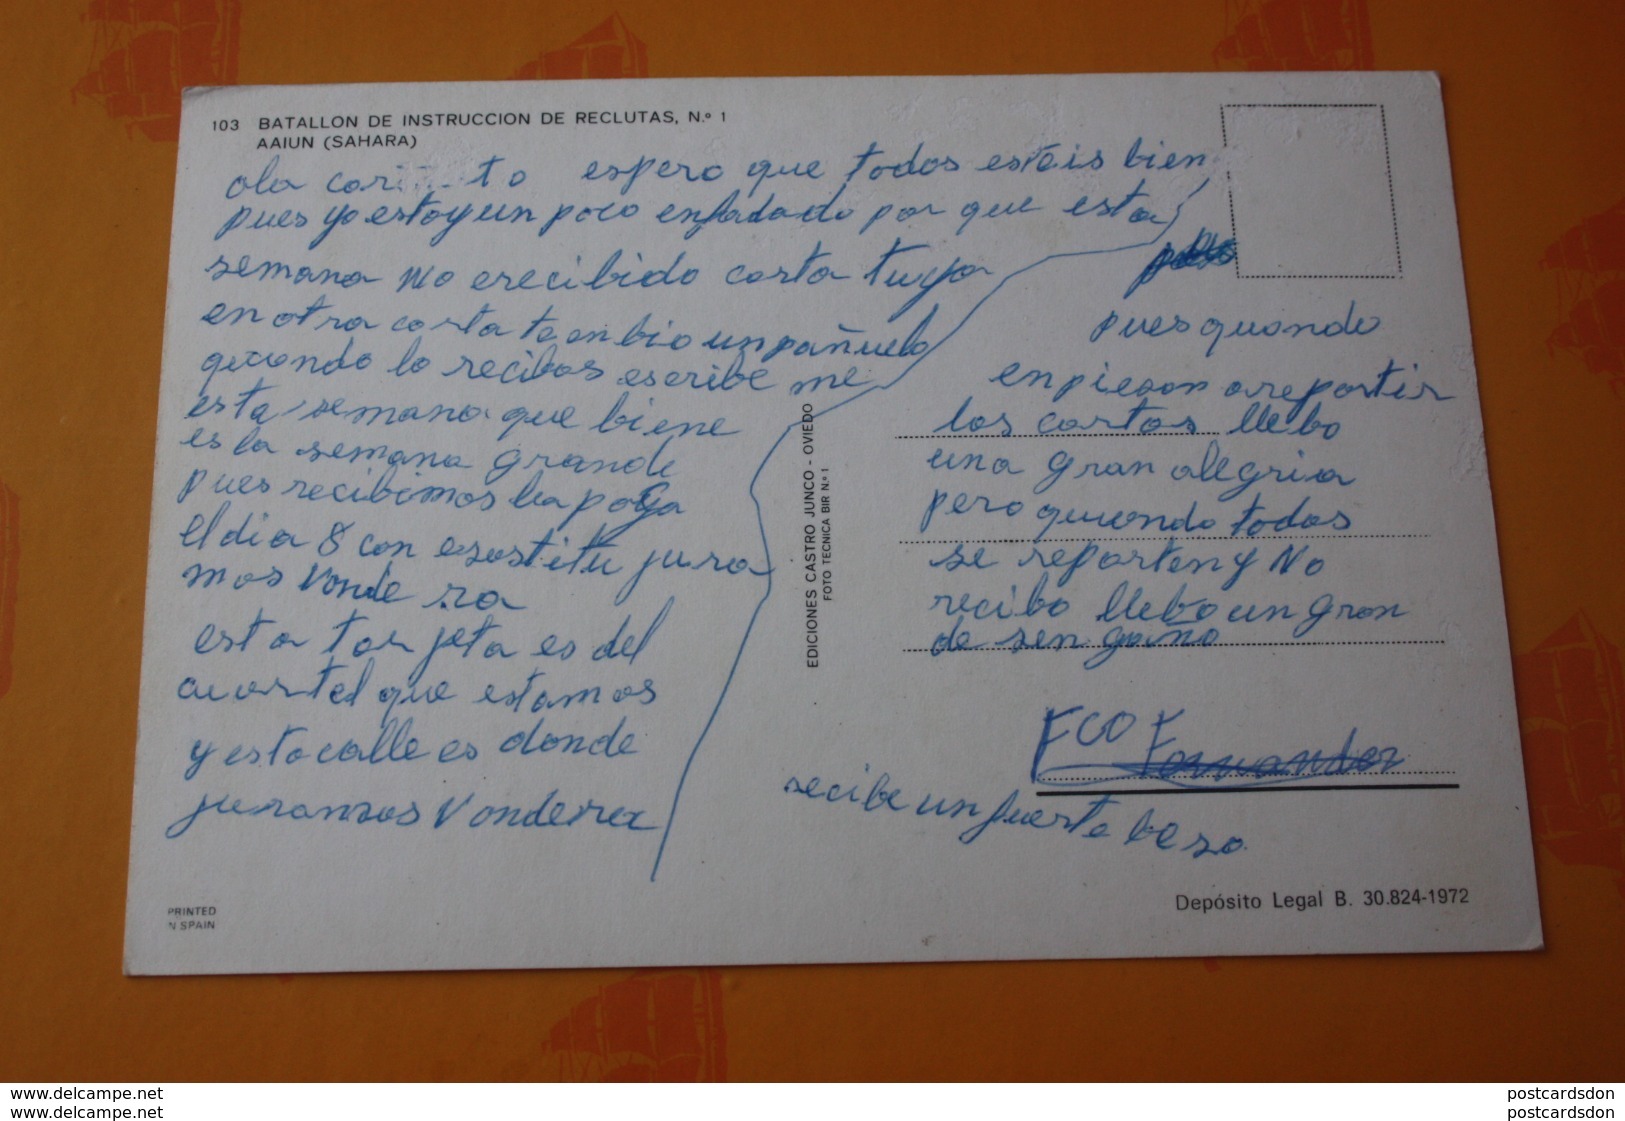 103 BATALLON DE INSTRUCCION DE RECLUTAS, N.º 1
AAIUN (SAHARA)
ola to espero que todos estéis bien
pues yo estoy un poco enfadado por que esta
semana no erecibido carta tuya
en otra carta te enbio un pañuelo
quando lo recibas escribe me
esta semana que biene
es la semana grande
pues recibimos la paga
el dia 8 con jura
mos vande ra
esta tarjeta es del
cuartel que estamos
y esta calle es donde
juramos vandera
pues quando
enpiezan a repartir
las cartas llebo
una gran alegria
pero quando todas
se reparten y no
recibo llebo un gran
desengaño
FCO Fernandez
recibe un fuerte beso
EDICIONES CASTRO JUNCO - OVIEDO
FOTO TECNICA BIR N.º 1
PRINTED
N SPAIN
Depósito Legal B. 30.824-1972
www.delcampe.net
www.delcampe.net
postcardsdon
postcardsdon